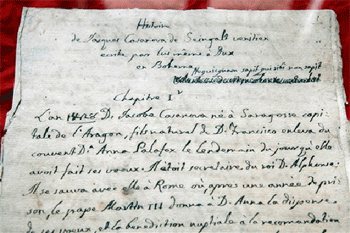 Histoire
de Jacques Casanova de Seingalt venitien
ecrite par lui même à Dux
en Boheme
Nequicquam sapit qui sibi non sapit
Chapitre I
L'an D. Jacobe Casanova né à Saragosse capi-
tale de l'Aragon, fils naturel de D. Francisco enleva du
couvent D. Anna Palafox le lendemain du jour qu'elle
avoit fait ses vœux. Il étoit secretaire du roi D. Alphonse.
Il se sauva avec elle à Rome où après une année de pri-
son, le pape Martin III donna à D. Anna la dispense
de ses vœux, et la benediction nuptiale à la recomandation